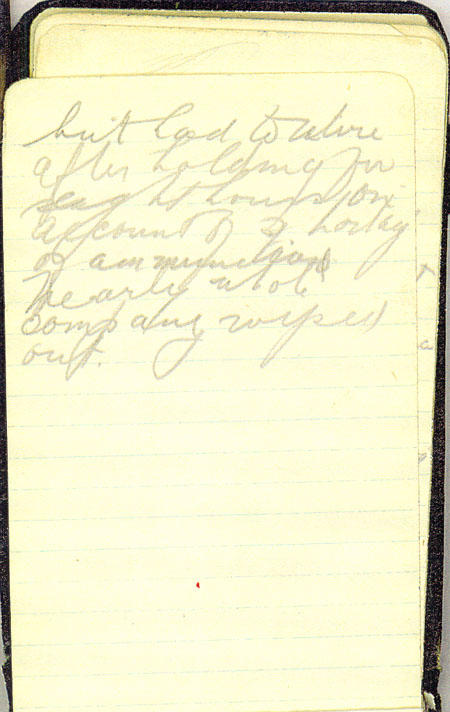 but had to retire
after holding for
eight hours on
account of shortag
of ammunition
nearly whole
company wiped
out.